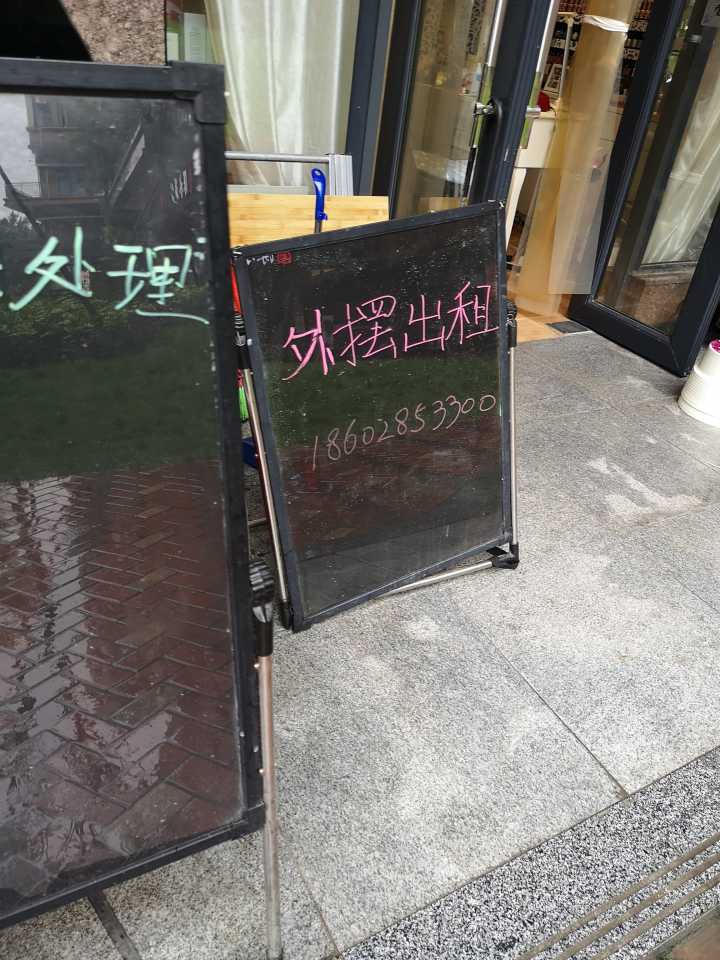 处理
外摆出租
18602853300